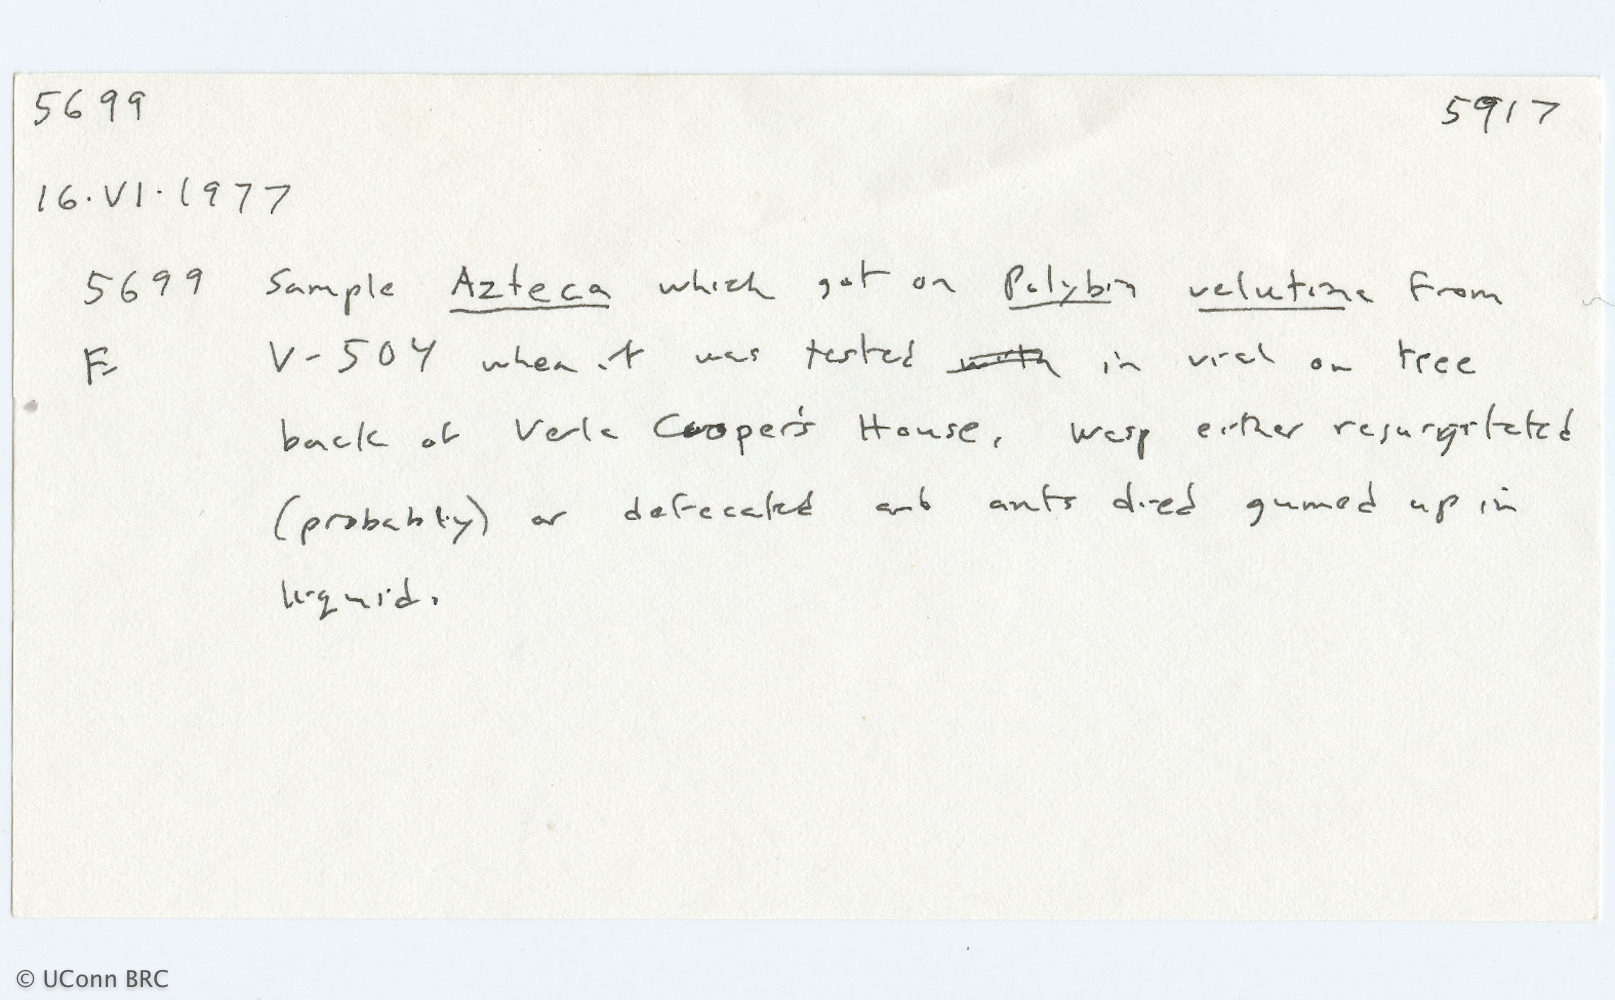 5699 5917
16.VI.1977
5699 Sample Azteca which got on Polybia velutina from
F V-504 when it was tested with in vial on tree
back of Verle Cooper's House, wasp either resurgitated
(probably) or defecated and ants died gumed up in
liquid.
© UConn BRC